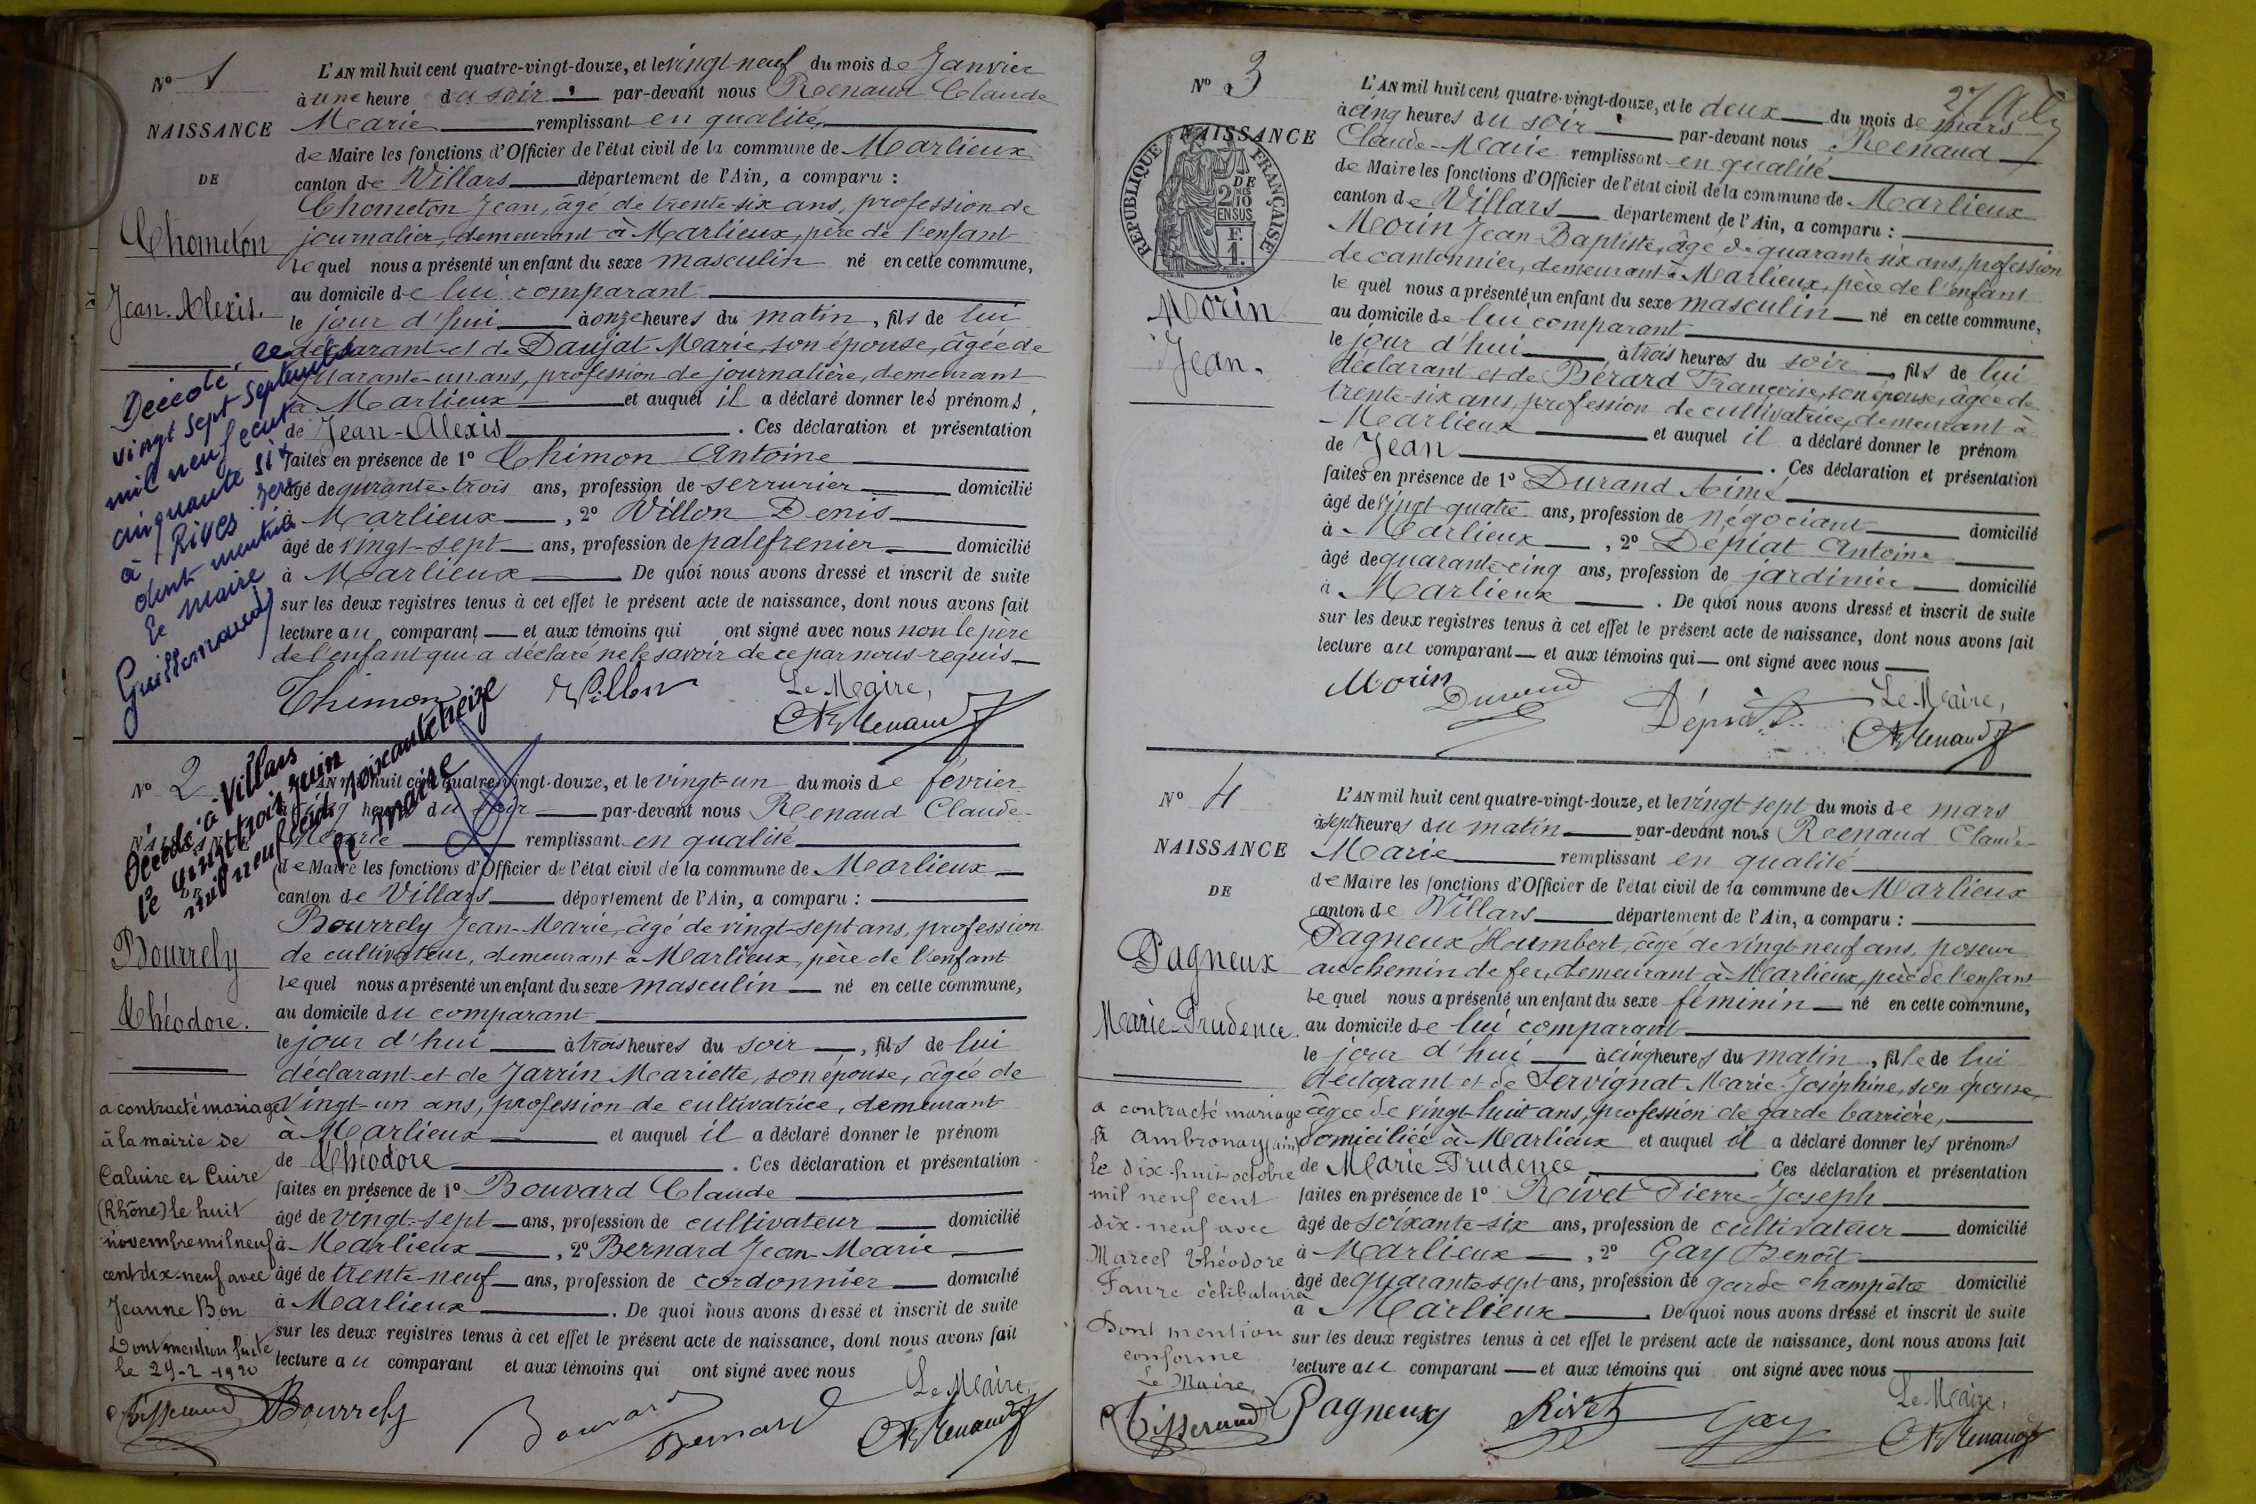 N° 1
NAISSANCE
DE
Chometon
Jean-Alexis.
Décédé, le
vingt sept septembre
mil neuf cent
cinquante six
à Rives
dont mention
le maire
L'AN mil huit cent quatre-vingt-douze, et le vingt-neuf du mois de Janvier
à une heure du soir par-devant nous Renaud Claude
Marie remplissant en qualité
de Maire les fonctions d'Officier de l'état civil de la commune de Marlieux
canton de Villars département de l'Ain, a comparu :
Chometon Jean, âgé de trente-six ans, profession de
journalier, demeurant à Marlieux, père de l'enfant
lequel nous a présenté un enfant du sexe masculin né en cette commune,
au domicile de lui comparant
le jour d'hui à onze heures du matin, fils de lui
déclarant et de Daujat Marie, son épouse, âgée de
quarante-un ans, profession de journalière, demeurant
à Marlieux et auquel il a déclaré donner les prénoms
de Jean-Alexis. Ces déclaration et présentation
faites en présence de 1° Thimon Antoine
âgé de qurante-trois ans, profession de serrurier domicilié
à Marlieux, 2° Villon Denis
âgé de vingt-sept ans, profession de palefrenier domicilié
à Marlieux De quoi nous avons dressé et inscrit de suite
sur les deux registres tenus à cet effet le présent acte de naissance, dont nous avons fait
lecture au comparant et aux témoins qui ont signé avec nous non le père
de l'enfant qui a déclaré ne le savoir de ce par nous requis
Thimon Villon Le Maire,
Cl. M. Renaud
N° 2
Décédé à Villars
le vingt trois juin
mil neuf cent soixante treize
le maire
Bourrely
Théodore.
a contracté mariage
à la mairie de
Caluire et Cuire
(Rhône) le huit
novembre mil neuf
cent dix-neuf avec
Jeanne Bon
Dont mention faite
le 29-2-1920
Tisserand
L'AN mil huit cent quatre-vingt-douze, et le vingt-un du mois de février
à cinq heures du soir par-devant nous Renaud Claude-
Marie remplissant en qualité
de Maire les fonctions d'Officier de l'état civil de la commune de Marlieux
canton de Villars département de l'Ain, a comparu :
Bourrely Jean-Marie, âgé de vingt-sept ans, profession
de cultivateur, demeurant à Marlieux, père de l'enfant
lequel nous a présenté un enfant du sexe masculin né en cette commune,
au domicile du comparant
le jour d'hui à trois heures du soir, fils de lui
déclarant et de Jarrin Mariette, son épouse, âgée de
vingt-un ans, profession de cultivatrice, demeurant
à Marlieux et auquel il a déclaré donner le prénom
de Théodore. Ces déclaration et présentation
faites en présence de 1° Bouvard Claude
âgé de vingt-sept ans, profession de cultivateur domicilié
à Marlieux, 2° Bernard Jean-Marie
âgé de trente-neuf ans, profession de cordonnier domicilié
à Marlieux. De quoi nous avons dressé et inscrit de suite
sur les deux registres tenus à cet effet le présent acte de naissance, dont nous avons fait
lecture au comparant et aux témoins qui ont signé avec nous
Bourrely Bouvard Bernard Le Maire,
Cl. M. Renaud
27
N° 3
NAISSANCE
DE
RÉPUBLIQUE FRANÇAISE
Morin
Jean.
L'AN mil huit cent quatre-vingt-douze, et le deux du mois de mars
à cinq heures du soir par-devant nous Renaud
Claude-Marie remplissant en qualité
de Maire les fonctions d'Officier de l'état civil de la commune de Marlieux
canton de Villars département de l'Ain, a comparu :
Morin Jean-Baptiste, âgé de quarante six ans, profession
de cantonnier, demeurant à Marlieux, père de l'enfant
lequel nous a présenté un enfant du sexe masculin né en cette commune,
au domicile de lui comparant
le jour d'hui, à trois heures du soir, fils de lui
déclarant et de Bérard Françoise, son épouse, âgée de
trente-six ans, profession de cultivatrice, demeurant à
Marlieux et auquel il a déclaré donner le prénom
de Jean. Ces déclaration et présentation
faites en présence de 1° Durand Aimé
âgé de vingt-quatre ans, profession de négociant domicilié
à Marlieux, 2° Dépiat Antoine
âgé de quarante-cinq ans, profession de jardinier domicilié
à Marlieux. De quoi nous avons dressé et inscrit de suite
sur les deux registres tenus à cet effet le présent acte de naissance, dont nous avons fait
lecture au comparant et aux témoins qui ont signé avec nous
Morin Durand Le Maire,
Cl. M. Renaud
N° 4
NAISSANCE
DE
Pagneux
Marie-Prudence.
a contracté mariage
à Ambronay (ain)
le dix-huit octobre
mil neuf cent
dix-neuf avec
Marcel Théodore
Faure célibataire
Dont mention
conforme
Le Maire,
Tisserand
L'AN mil huit cent quatre-vingt-douze, et le vingt-sept du mois de mars
à sept heures du matin par-devant nous Renaud Claude-
Marie remplissant en qualité
de Maire les fonctions d'Officier de l'état civil de la commune de Marlieux
canton de Villars département de l'Ain, a comparu :
Pagneux Humbert, âgé de vingt-neuf ans, poseur
au chemin de fer, demeurant à Marlieux, père de l'enfant
lequel nous a présenté un enfant du sexe féminin né en cette commune,
au domicile de lui comparant
le jour d'hui à cinq heures du matin, fille de lui
déclarant et de Servignat Marie-Joséphine, son épouse,
âgée de vingt-huit ans, profession de garde barrière,
domiciliée à Marlieux et auquel il a déclaré donner les prénoms
de Marie-Prudence. Ces déclaration et présentation
faites en présence de 1° Rivet Pierre-Joseph
âgé de soixante-six ans, profession de cultivateur domicilié
à Marlieux, 2° Gay Benoît
âgé de quarante-sept ans, profession de garde champêtre domicilié
à Marlieux. De quoi nous avons dressé et inscrit de suite
sur les deux registres tenus à cet effet le présent acte de naissance, dont nous avons fait
lecture au comparant et aux témoins qui ont signé avec nous
Pagneux Rivet Gay Le Maire,
Cl. M. Renaud